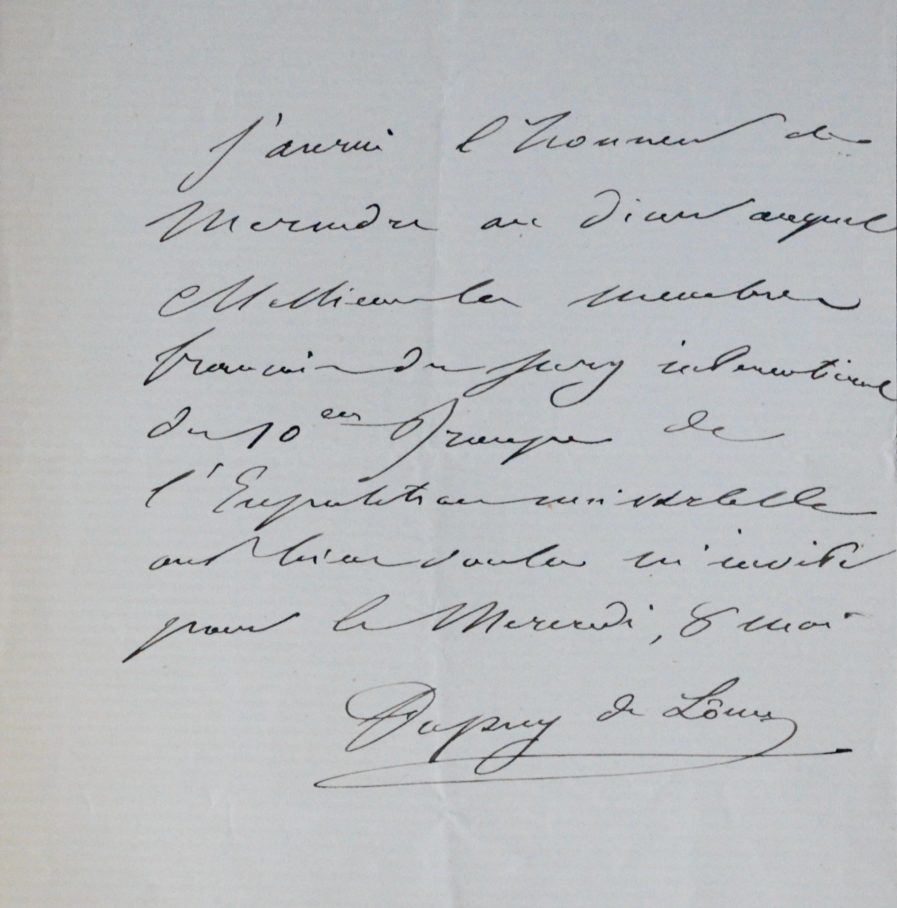 J'aurai l'honneur de
me rendre au diner auquel
Messieurs les membres
français du Jury international
du 10em Groupe de
l'Exposition universelle
ont bien voulu m'inviter
pour le Mercredi, 8 mai
Dupuy de Lôme